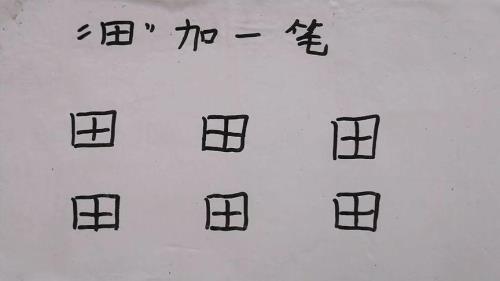 "田"加一笔
田 田 田
田 田 田